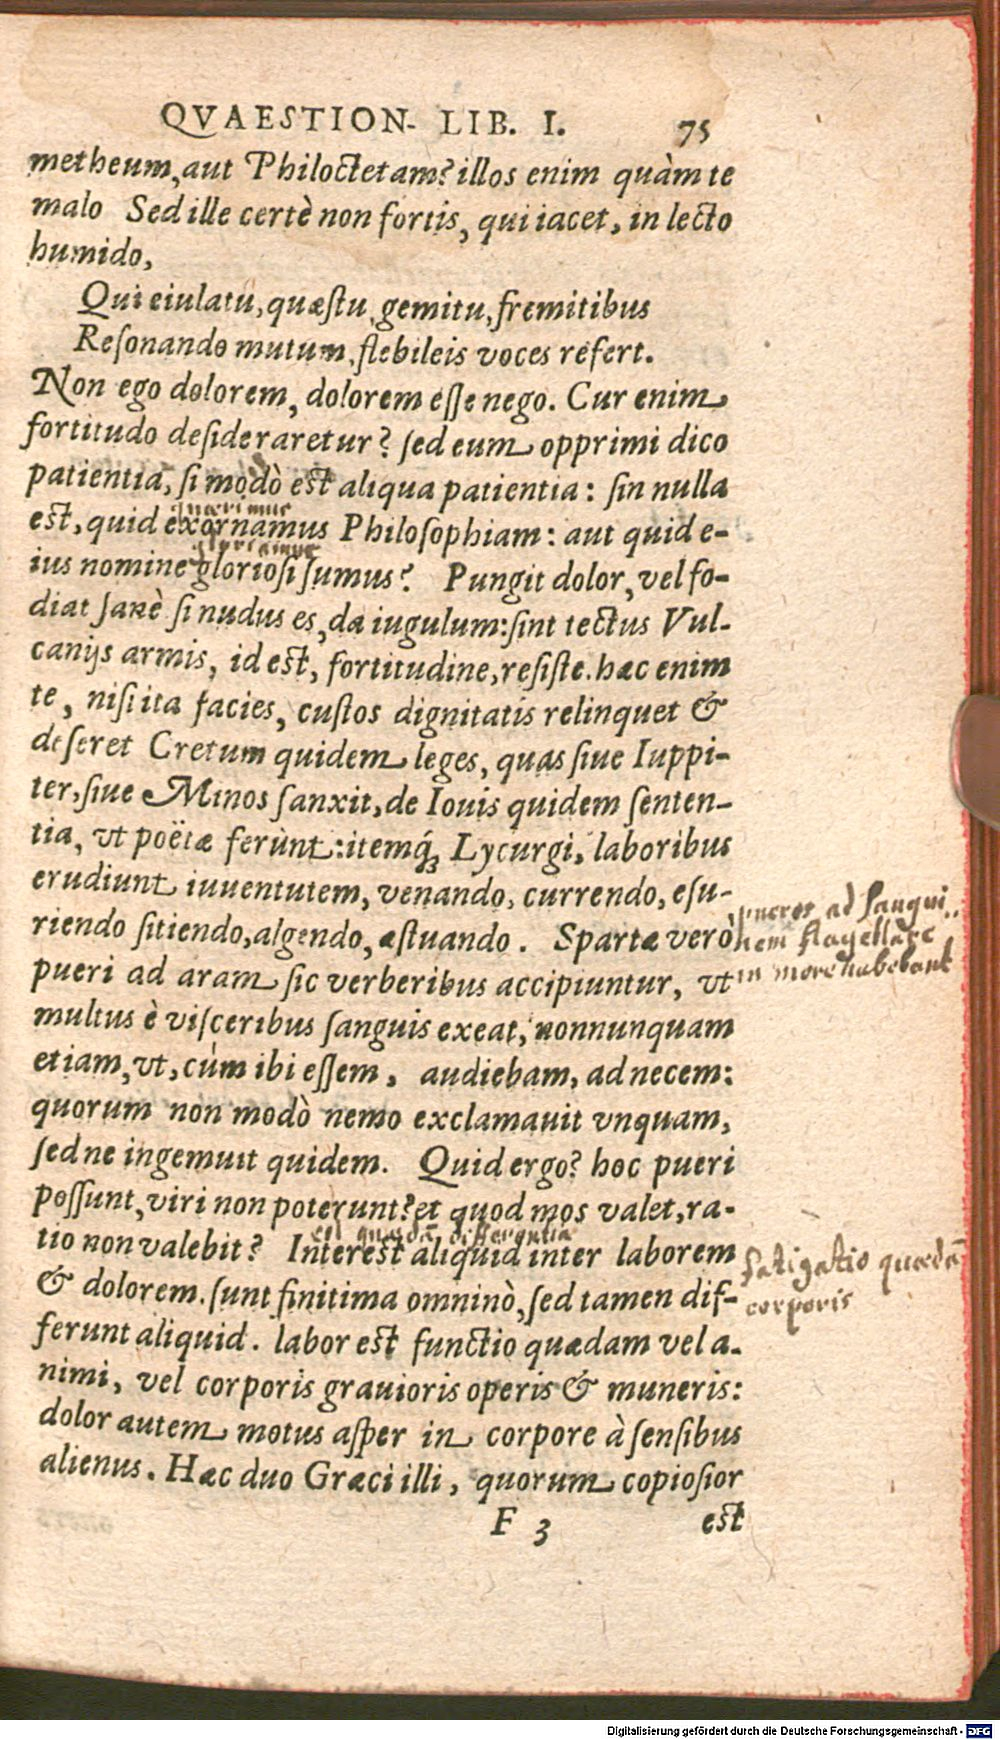 QVAESTION. LIB. I. 75
metheum, aut Philoctetam? illos enim quàm te
malo Sed ille certè non fortis, qui iacet, in lecto
humido,
Qui eiulatu, quæstu, gemitu, fremitibus
Resonando mutum, flebileis voces refert.
Non ego dolorem, dolorem esse nego. Cur enim
fortitudo desideraretur? sed eum opprimi dico
patientia, si modò est aliqua patientia: sin nulla
est, quid exornamus Philosophiam: aut quid e-
gloriamur
ius nomine gloriosi sumus? Pungit dolor, vel fo-
diat sanè si nudus es, da iugulum: sint tectus Vul-
canijs armis, id est, fortitudine, resiste. hæc enim
te, nisi ita facies, custos dignitatis relinquet &
deseret Cretum quidem leges, quas siue Iuppi-
ter, siue Minos sanxit, de Iouis quidem senten-
tia, vt poëtæ ferunt: itemq́; Lycurgi, laboribus
erudiunt iuuentutem, venando, currendo, esu-
riendo sitiendo, algendo, æstuando. Spartæ verò
ad sangui
nem flagellare
in more habebant
pueri ad aram sic verberibus accipiuntur, vt
multus è visceribus sanguis exeat, nonnunquam
etiam, vt, cúm ibi essem, audiebam, ad necem:
quorum non modò nemo exclamauit vnquam,
sed ne ingemuit quidem. Quid ergo? hoc pueri
possunt, viri non poterunt? et quod mos valet, ra-
est quædã differentia
tio non valebit? Interest aliquid inter laborem
fatigatio quædã
corporis
& dolorem. sunt finitima omninò, sed tamen dif-
ferunt aliquid. labor est functio quædam vel a-
nimi, vel corporis grauioris operis & muneris:
dolor autem motus asper in corpore à sensibus
alienus. Hæc duo Græci illi, quorum copiosior
F 3 est
Digitalisierung gefördert durch die Deutsche Forschungsgemeinschaft - DFG